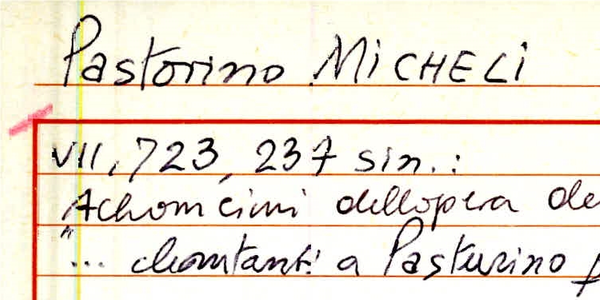 Pastorino MICHELI
VII, 723, 237 sin.:
Achoncimi dell'opera de
"... chontanti a Pasturino p